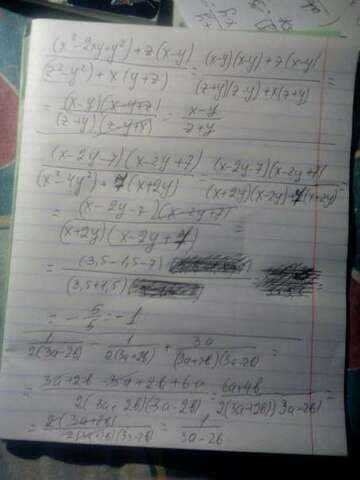 (x²-2xy+y²)+z(x-y) / (z²-y²)+x(y+z) = (x-y)(x-y)+z(x-y) / (z+y)(z-y)+x(z+y) =
= (x-y)(x-y+z) / (z+y)(z-y+x) = x-y / z+y
(x-2y-7)(x-2y+7) / (x²-4y²)+7(x+2y) = (x-2y-7)(x-2y+7) / (x+2y)(x-2y)+7(x+2y) =
= (x-2y-7)(x-2y+7) / (x+2y)(x-2y+7) =
= (3,5-1,5-7) / (3,5+1,5) =
= -5/5 = -1
1 / 2(3a-2b) - 1 / 2(3a+2b) + 3a / (3a+2b)(3a-2b) =
= 3a+2b-3a+2b+6a / 2(3a+2b)(3a-2b) = 6a+4b / 2(3a+2b)(3a-2b) =
= 2(3a+2b) / 2(3a+2b)(3a-2b) = 1 / 3a-2b